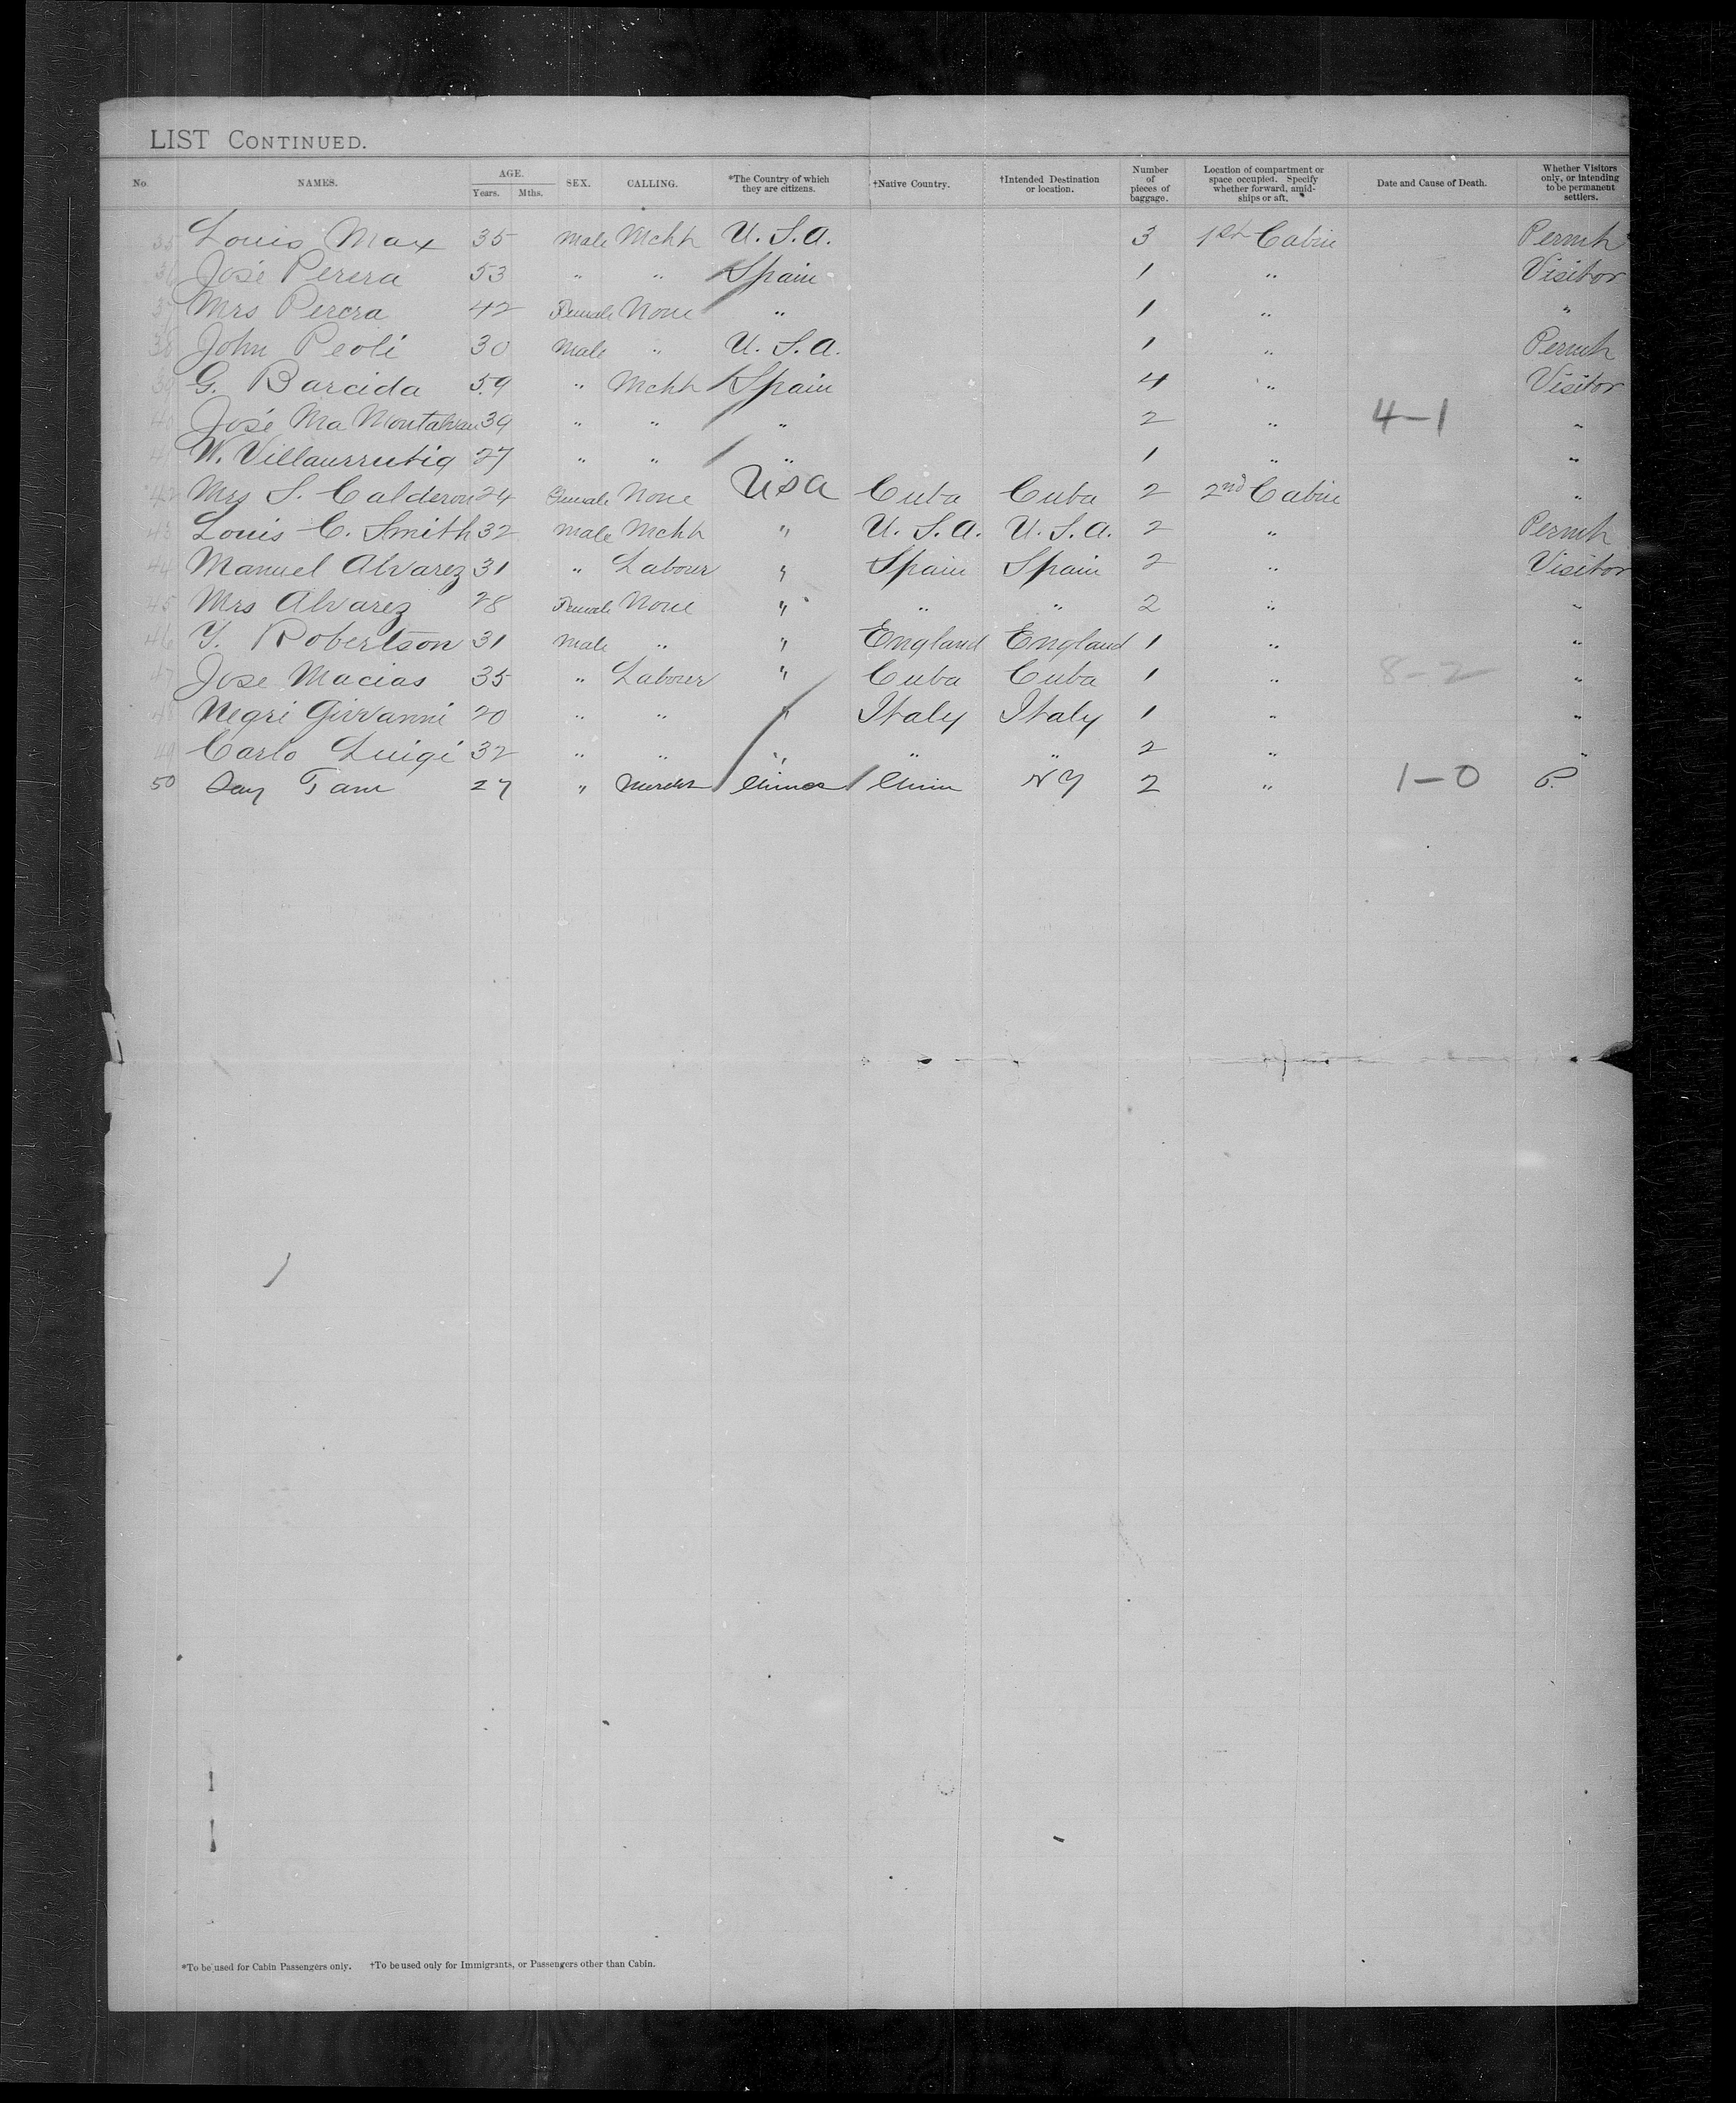 LIST CONTINUED.
No. NAMES. AGE. Years. Mths. SEX. CALLING. *The Country of which they are citizens. †Native Country. †Intended Destination or location. Number of pieces of baggage. Location of compartment or space occupied. Specify whether forward, amidships or aft. Date and Cause of Death. Whether Visitors only, or intending to be permanent settlers.
35 Louis Max 35 Male Mcht U.S.A. 3 1st Cabin Permt
36 José Perera 53 " " Spain 1 " Visitor
37 Mrs Perera 42 Female None " 1 " "
38 John Peoli 30 Male " U.S.A. 1 " Permt
39 G. Barcida 59 " Mcht Spain 4 " Visitor
40 José Ma 39 " " " 2 " 4-1 "
41 W. Villaurrutia 27 " " " 1 " "
42 Mrs S. Calderon 24 Female None USA Cuba Cuba 2 2nd Cabin "
43 Louis C. Smith 32 Male Mcht " U.S.A. U.S.A. 2 " Permt
44 Manuel Alvarez 31 " Labourer " Spain Spain 2 " Visitor
45 Mrs Alvarez 28 Female None " " " 2 " "
46 Y. Robertson 31 Male " " England England 1 " "
47 Jose Macias 35 " Labourer " Cuba Cuba 1 " 8-2 "
48 Negri Givvanni 20 " " " Italy Italy 1 " "
49 Carlo Luigi 32 " " " " " 2 " "
50 Tam 27 " NY 2 " 1-0 P.
*To be used for Cabin Passengers only. †To be used only for Immigrants, or Passengers other than Cabin.